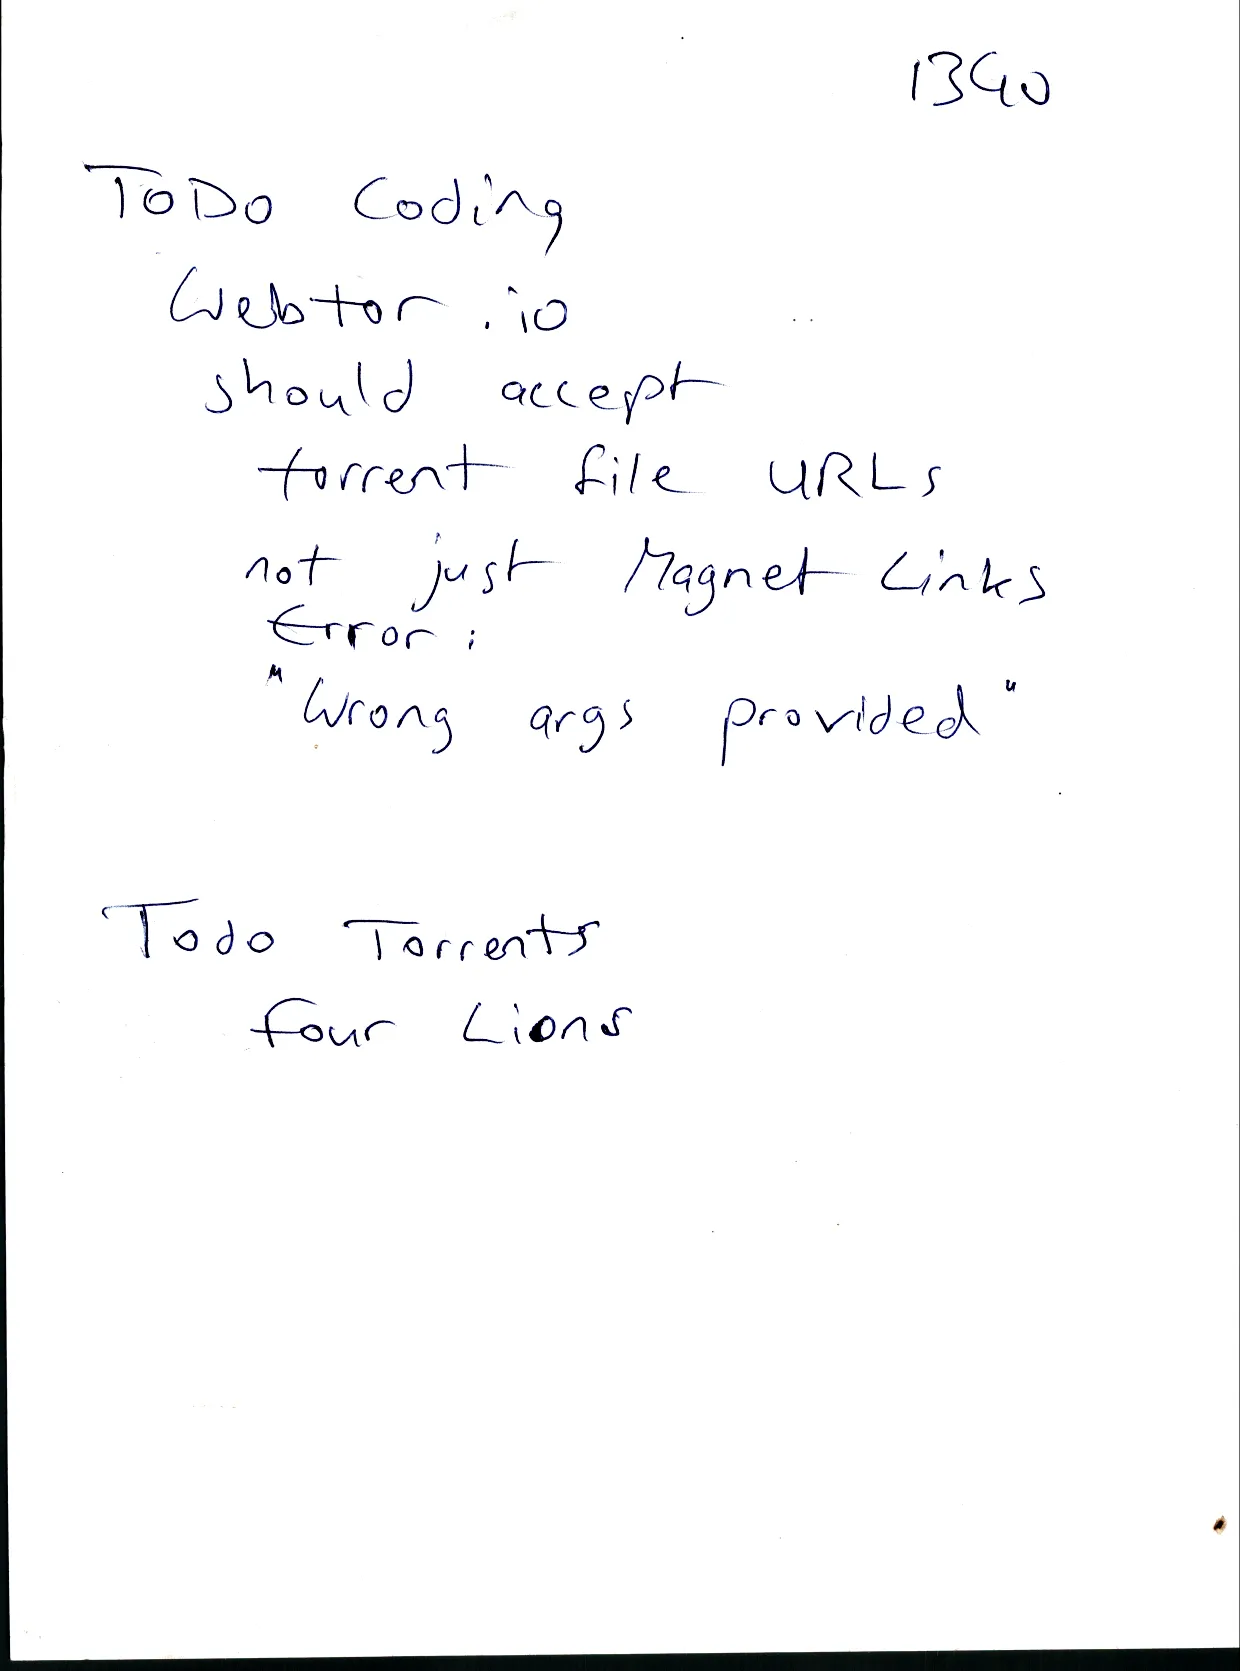 1340
ToDo Coding
Webtor.io
should accept
torrent file URLs
not just Magnet Links
Error:
"Wrong args provided"
Todo Torrents
four Lions